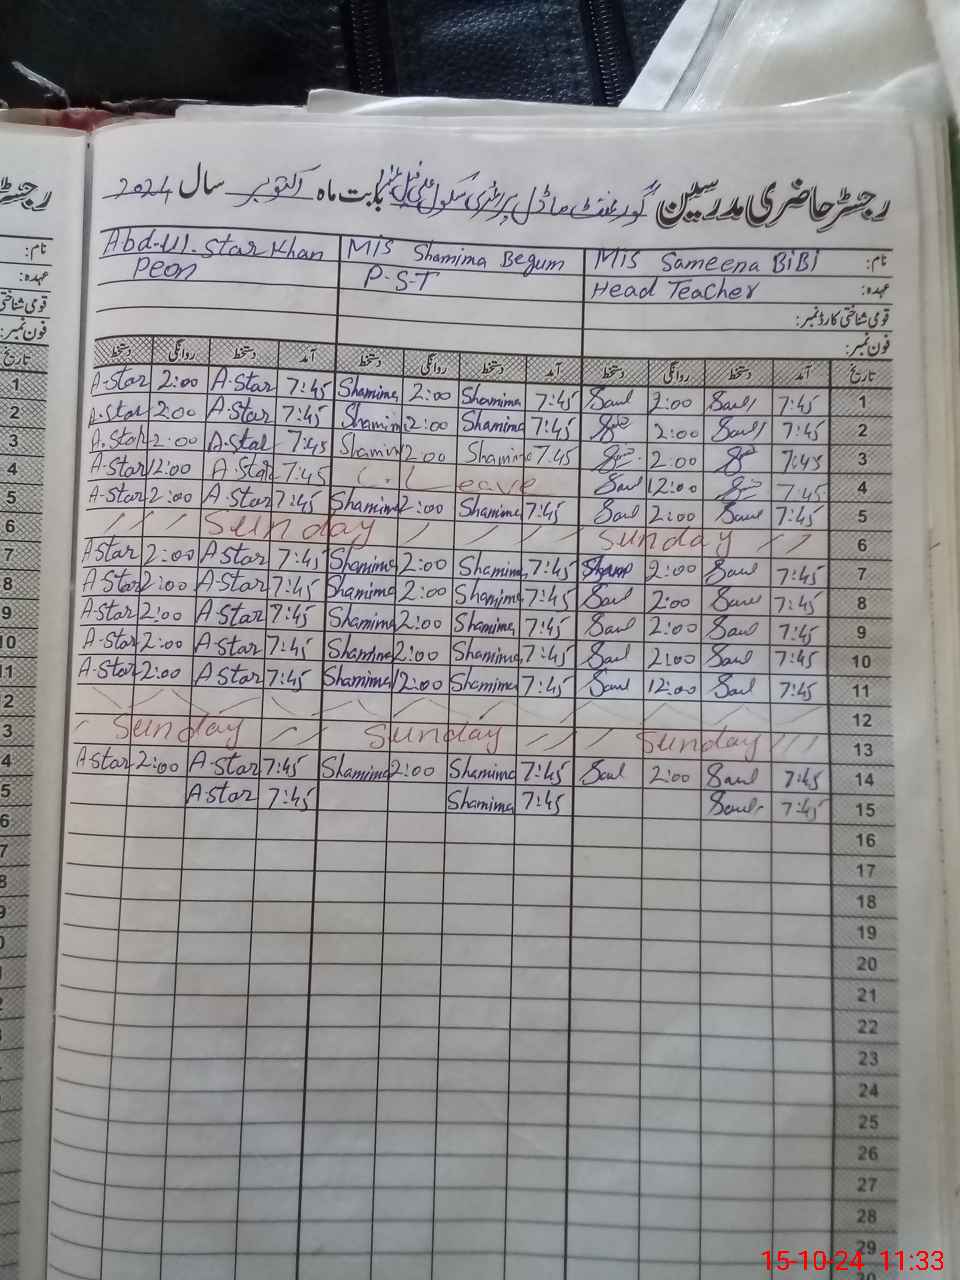 رجسٹر حاضری مدرسین گورنمنٹ ماڈل پرائمری سکول بابت ماہ اکتوبر سال 2024
نام: Mis Sameena BiBi Mis Shamima Begum Abd-Ul-Star Khan
عہدہ: Head Teacher P-S-T Peon
قومی شناختی کارڈ نمبر:
فون نمبر:
تاریخ آمد دستخط روانگی دستخط آمد دستخط روانگی دستخط آمد دستخط روانگی دستخط
1 7:45 Saml 2:00 Saml 7:45 Shamima 2:00 Shamima 7:45 A-Star 2:00 A-Star
2 7:45 Saml 2:00 7:45 Shamima 2:00 Shamima 7:45 A-Star 2:00 A-Star
3 7:45 2:00 7:45 Shamima 2:00 Shamima 7:45 A-Star 2:00 A-Star
4 7:45 12:00 Saml C.Leave 7:45 A-Star 12:00 A-Star
5 7:45 Saml 2:00 Saml 7:45 Shamima 2:00 Shamima 7:45 A-Star 2:00 A-Star
6 Sunday Sunday
7 7:45 Saml 2:00 7:45 Shamima 2:00 Shamima 7:45 A-Star 2:00 A-Star
8 7:45 Saml 2:00 Saml 7:45 Shamima 2:00 Shamima 7:45 A-Star 2:00 A-Star
9 7:45 Saml 2:00 Saml 7:45 Shamima 2:00 Shamima 7:45 A-Star 2:00 A-Star
10 7:45 Saml 2:00 Saml 7:45 Shamima 2:00 Shamima 7:45 A-Star 2:00 A-Star
11 7:45 Saml 12:00 Saml 7:45 Shamima 12:00 Shamima 7:45 A-Star 12:00 A-Star
12
13 Sunday Sunday Sunday
14 7:45 Saml 2:00 Saml 7:45 Shamima 2:00 Shamima 7:45 A-Star 2:00 A-Star
15 7:45 Saml 7:45 Shamima 7:45 A-Star
16
17
18
19
20
21
22
23
24
25
26
27
28
29
15-10-24 11:33